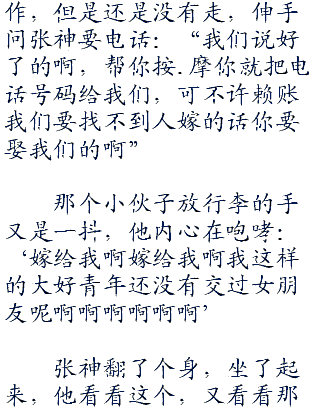 作，但是还是没有走，伸手
问张神要电话：“我们说好
了的啊，帮你按.摩你就把电
话号码给我们，可不许赖账
我们要找不到人嫁的话你要
娶我们的啊”
那个小伙子放行李的手
又是一抖，他内心在咆哮：
‘嫁给我啊嫁给我啊我这样
的大好青年还没有交过女朋
友呢啊啊啊啊啊啊’
张神翻了个身，坐了起
来，他看看这个，又看看那